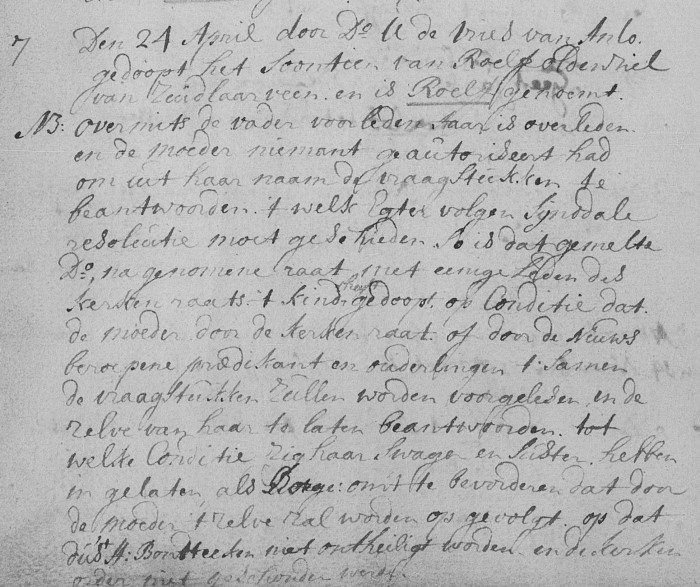 7 Den 24 April door Do. U de Vries van Anlo.
gedoopt het Soonteen van Roelf oldenhiel
van Zuidlaarveen. en is Roelf genoemt.
NB: overmits de vader voorleden Jaar is overleden.
en de moeder niemant geautoriseert had
om uit haar naam de vraagstukken te
beantwoorden. 't welk Egter volgen Synodale
resolutie moet geschieden so is dat gemelte
Do, na genomene raat met eenige Leden des
kerkenraats 't kind heeft gedoopt. op Conditie dat.
de moeder door de kerkenraat. of door de Nieuws
beroepene prædikant en ouderlingen t. samen
de vraagstukken zullen worden voorgeleden en de
zelve van haar te laten beantwoorden. tot
welke Conditie zig haar Swager en Suster. hebben
in gelaten, als Borge: omt te bevorderen dat door
de moeder 't zelve zal worden op gevolgt. op dat
dus 't H: Bontteeken niet ontheiligt worden. en de kerken
order niet geschonden werde.